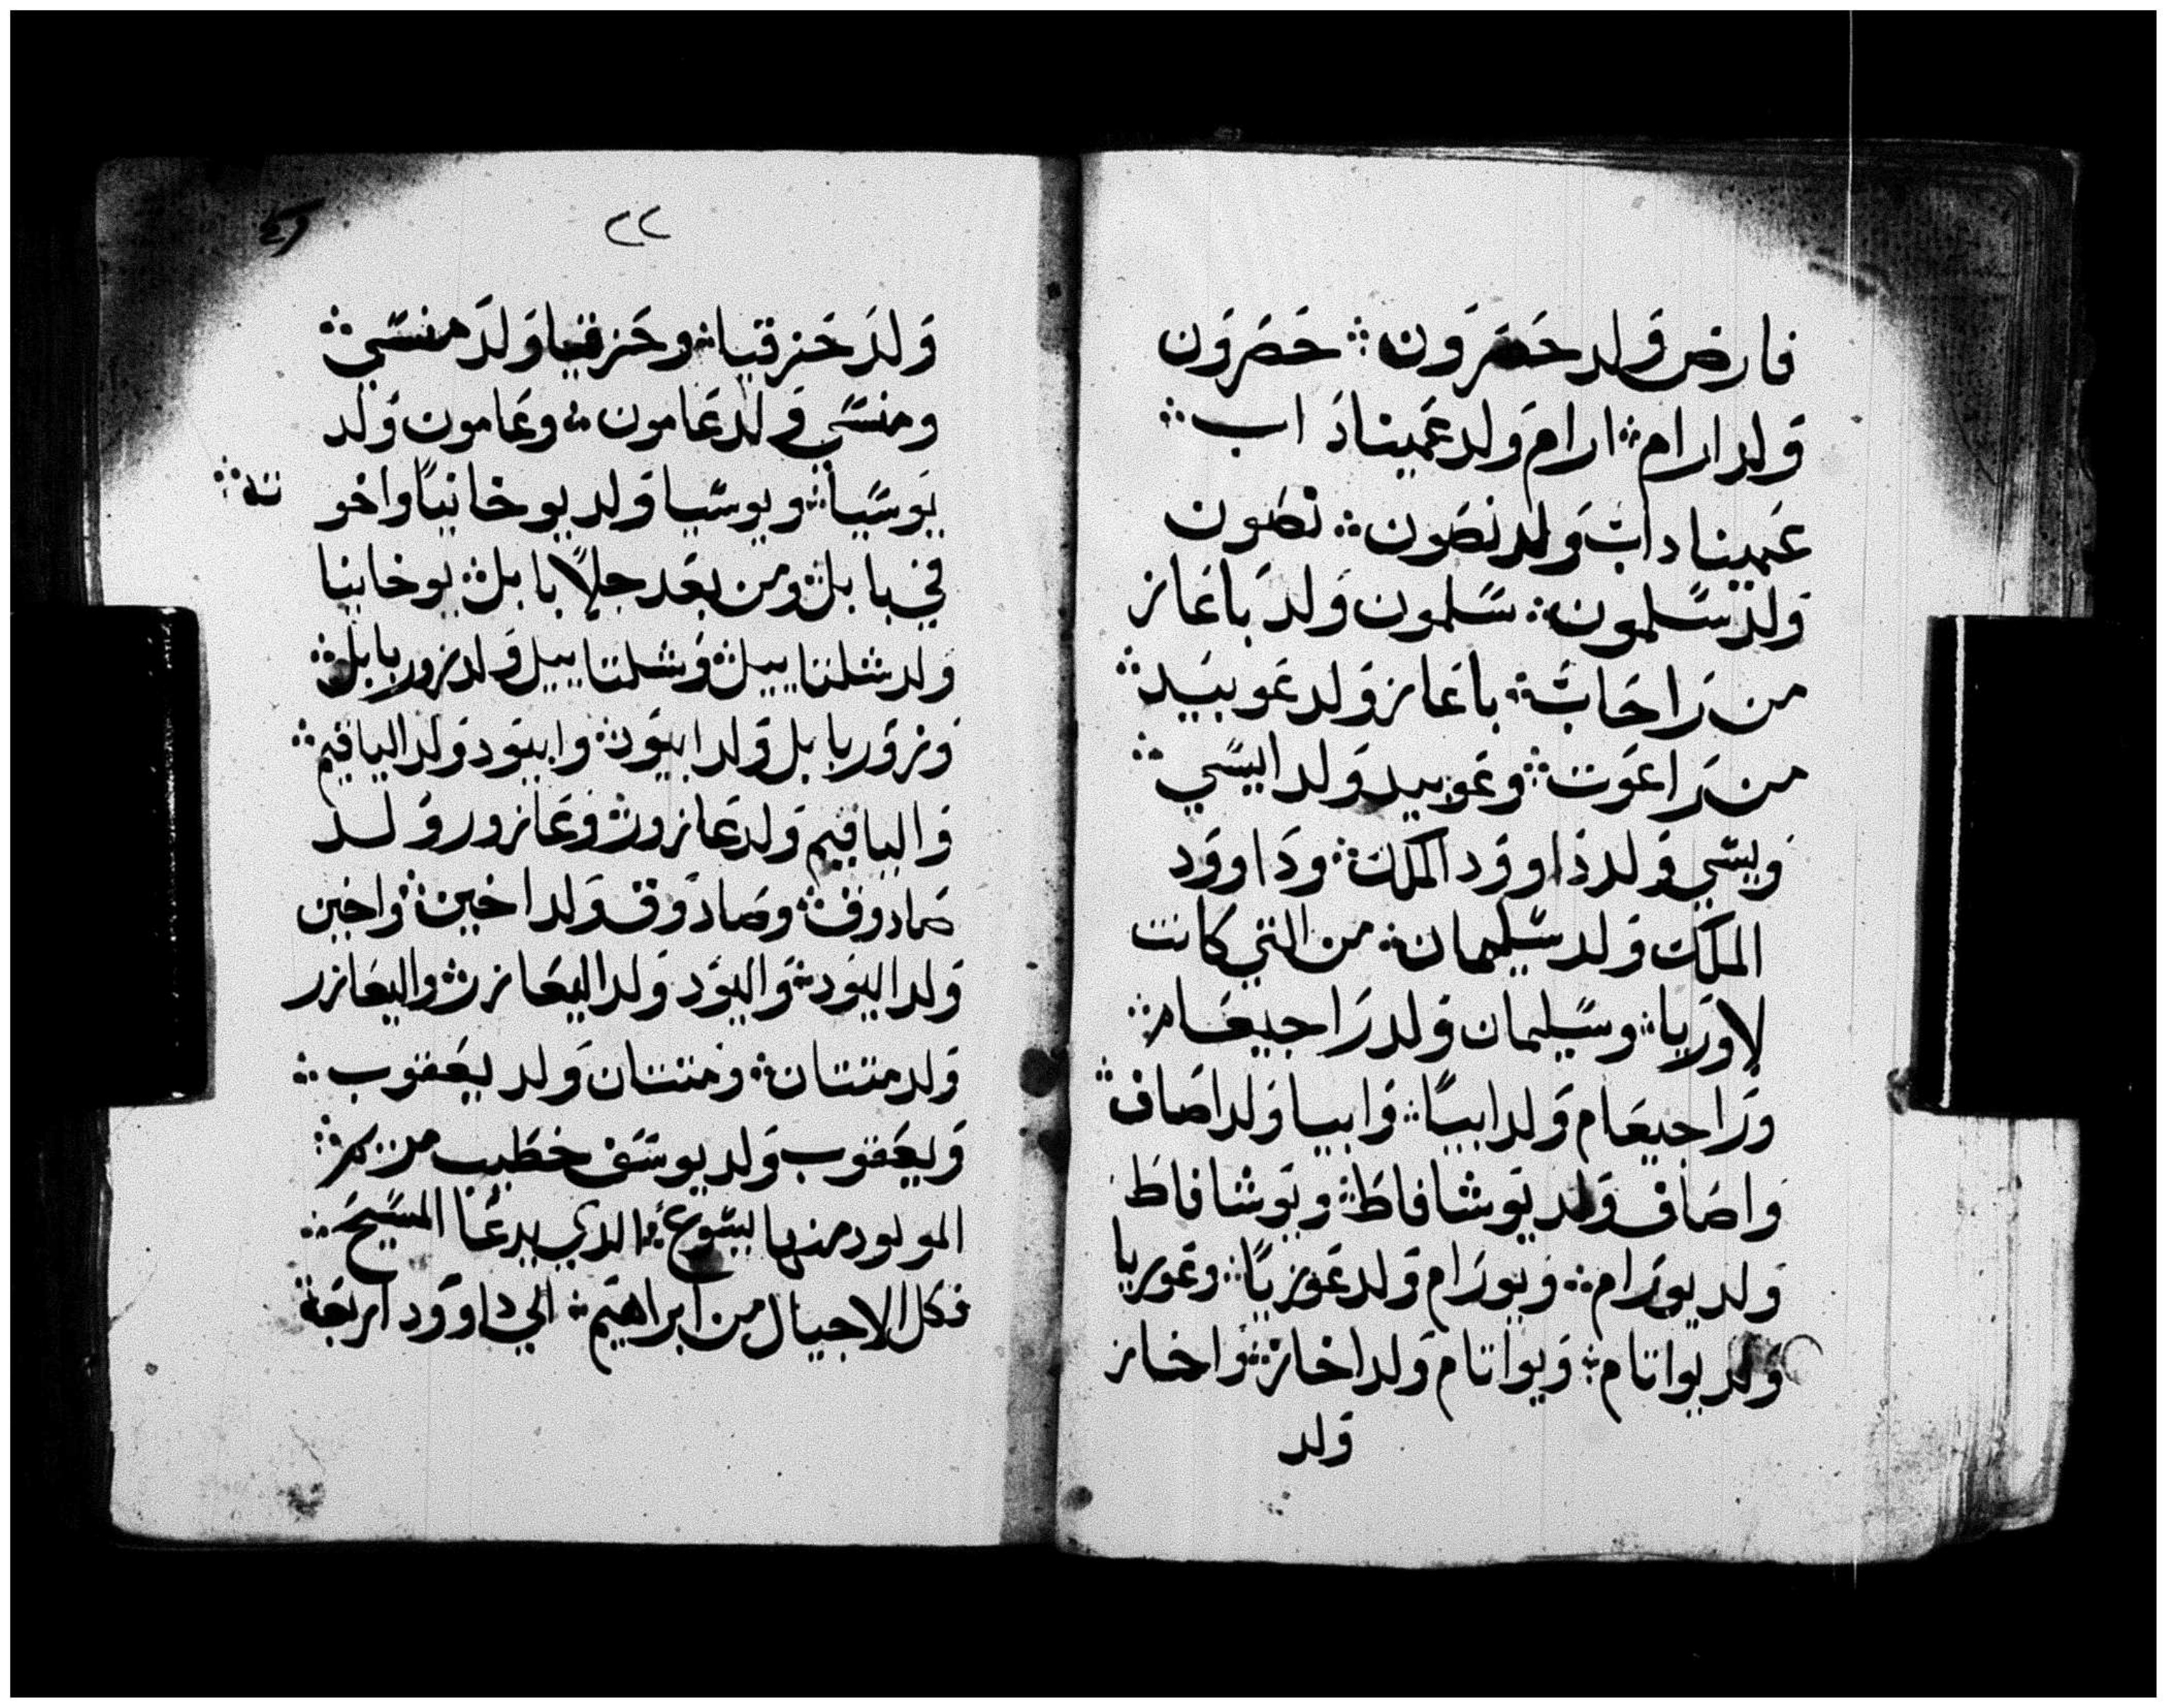 فارض وَلد حَصَرَون ܀ حَصَرَون
وَلد ارام ܀ ارام وَلد عَمينادَ اب ܀
عَميناداب وَلد نصَون ܀ نصَون
وَلد سَلمون ܀ سَلمون وَلدَ باعَاز
من رَاحَابَ ܀ باعَاز وَلد عَوبيَد ܀
من رَاعَوت ܀ وعَوبيد وَلد ايسَي ܀
وَيسَي وَلد دَاوَود الملك ܀ ودَاووَد
الملك وَلد سَليمان ܀ من التي كانت
لاوَريا ܀ وسَليمان وَلد رَاجيعَام ܀
ورَاجيعَام وَلد ابيَا ܀ وَابيا وَلد اصَاف ܀
وَاصَاف وَلد يَوشافاطَ ܀ ويَوشافاطَ
وَلد يورَام ܀ وَيورَام وَلد عَوزيَا ܀ وعَوريا
وَلد يواتام ܀ وَيواتام وَلد اخاز ܀ وَاخاز
وَلد
٢٢
وَلدَ حَزقيا ܀ وحَزقيا وَلدَ منسَي ܀
ومنسَي وَلد عَامون ܀ وعَامون وَلد
يَوسَيا ܀ ويوسَيا وَلد يوخانيَا واخو
ته ܀
في بابل ܀ ومن بعَد جلاَ بابل ܀ يوخانيا
وَلد شلتاييل ܀ وَشلتاييل وَلد زوربابل ܀
وَزوَربابل وَلد ابيَود ܀ وابيَود وَلد الياقيم ܀
وَالياقيم وَلد عَازور ܀ وَعَازور وَلد
صَادوق ܀ وصَادَوق وَلد اخين ܀ وَاخين
وَلد اليَود ܀ وَاليَود وَلد اليعَازر ܀ واليعَازر
وَلد متتان ܀ وَمتتان وَلد يعَقوب ܀
وَيعَقوب وَلد يوسَف خطَيب مريم ܀
المولود منها يسَوع ܀ الدي يدعَا المسَيحَ ܀
فكل الاجيال من ابراهيَم ܀ الي داوَود اربعَة